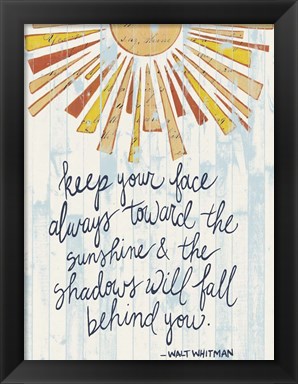 keep your face
always toward the
sunshine & the
shadows will fall
behind you.
– WALT WHITMAN